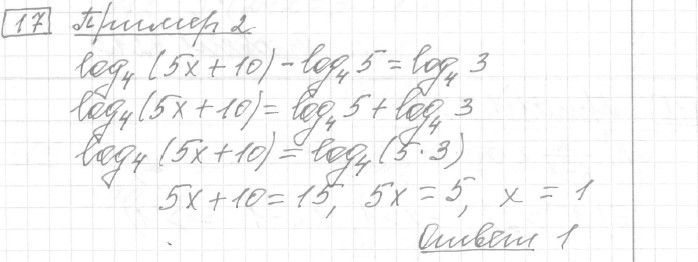 17 Пример 2
log₄ (5x+10) - log₄ 5 = log₄ 3
log₄ (5x+10) = log₄ 5 + log₄ 3
log₄ (5x+10) = log₄ (5·3)
5x+10=15, 5x=5, x=1
Ответ 1